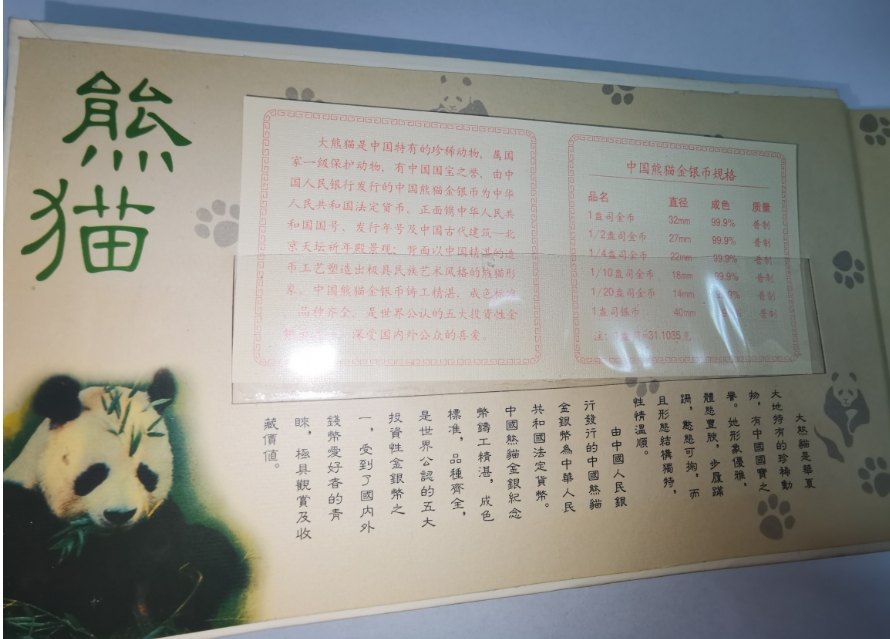 熊猫
大熊猫是中国特有的珍稀动物，属国
家一级保护动物，有中国国宝之誉，由中
国人民银行发行的中国熊猫金银币为中华
人民共和国法定货币。正面镌中华人民共
和国国号、发行年号及中国古代建筑—北
京天坛祈年殿景观；背面以中国精湛的造
币工艺塑造出极具民族艺术风格的熊猫形
象。中国熊猫金银币铸工精湛，成色
，品种齐全，是世界公认的五大投资性金
深受国内外公众的喜爱。
中国熊猫金银币规格
品名 直径 成色 质量
1盎司金币 32mm 99.9% 普制
1/2盎司金币 27mm 99.9% 普制
1/4盎司金币 22mm 99.9% 普制
1/10盎司金币 18mm 99.9% 普制
1/20盎司金币 14mm 9% 普制
1盎司银币 40mm 普制
注： 31.1035克
大熊貓是華夏
大地特有的珍稀動
物，有中國國寶之
譽。她形象優雅，
體態豐腴，步履蹣
跚，憨態可掬，而
且形態結構獨特，
性情溫順。
由中國人民銀
行發行的中國熊貓
金銀幣為中華人民
共和國法定貨幣。
中國熊貓金銀紀念
幣鑄工精湛，成色
標準，品種齊全，
是世界公認的五大
投資性金銀幣之
一，受到了國內外
錢幣愛好者的青
睞，極具觀賞及收
藏價值。